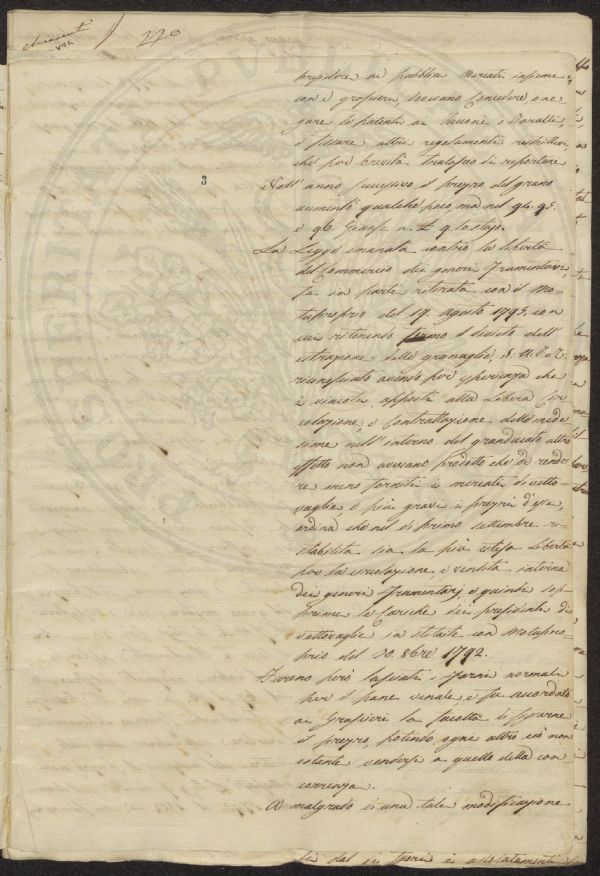 220
presedere ai pubblici Mercati insieme
con i grascieri, dovevano concedere o ne
gare le patenti ai Trecconi e Baralli,
e fissare altri regolamenti restrittivi
che per brevità tralascio di riportare
Nell' anno successivo il prezzo del grano
aumentò qualche poco, ma nel 94. 95.
e 96. giunse a £ 9. lo stajo.
La Legge emanata contro la libertà
del Commercio dei generi Frumentari,
fu in parte ritirata con il Mo-
tuproprio del 17. Agosto 1795. con
cui ritenendo fermo il divieto dell'
estrazione delle granaglie, S. A. R.
riconosciuto avendo per esperienza che
i vincoli apposti alla Libera Cir
colazione, e Contrattazione delle mede
sime nell' interno del granducato altro
effetto non avevano prodotto che di rende
re meno forniti i mercati di vetto-
vaglie, e più gravi i prezzi d'esse,
ordinò che nel dì primo settembre ri-
stabilita sia la più estesa libertà
per la circolazione, e vendita interna
dei generi Frumentarj, e quindi sop-
prime le cariche dei presidenti di
vettovaglie instituite con Motupro-
prio del 30. 8bre 1792.
Furono però lasciati i Forni normali
per il pane venale e fu accordato
ai Grascieri la facoltà di fissarne
il prezzo, potendo ogni altro ciò non
ostante vendersi a quello della con
correnza.
A malgrado di una tale modificazione